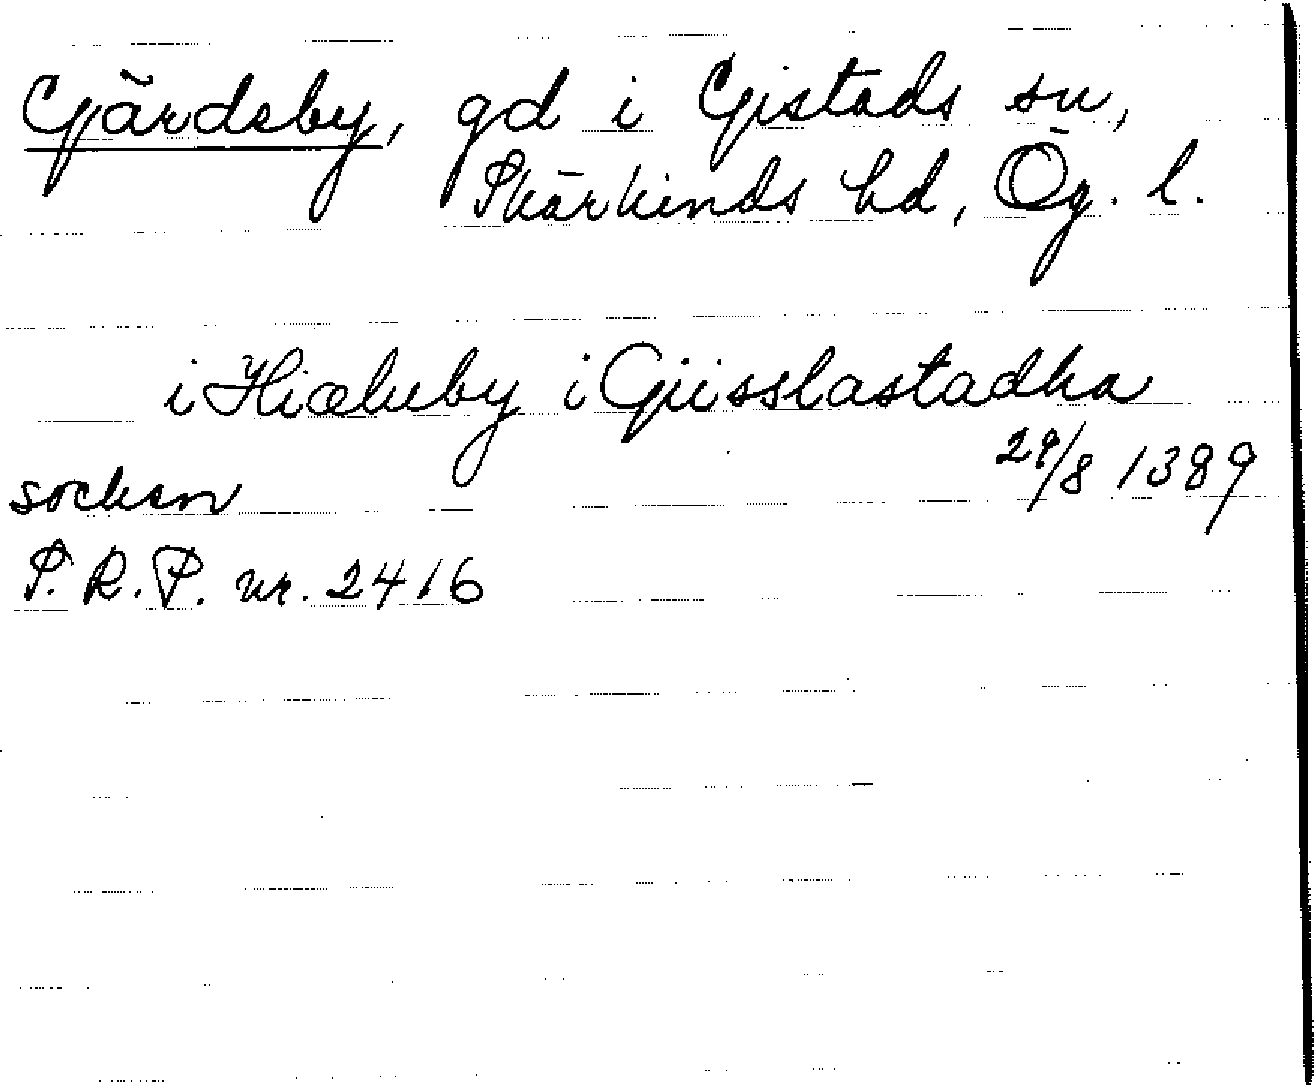 Gärdsby, gd i Gistads sn,
Skärkinds hd, Ög. l.
i Hiæluby i Giisslastadha
socken 29/8 1389
S.R.P. nr. 2416